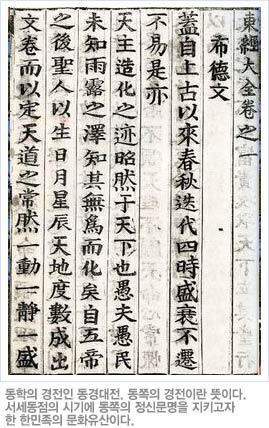 東經大全卷之一
布德文
蓋自上古以來春秋迭代四時盛衰不遷
不易是亦
天主造化之迹昭然于天下也愚夫愚民
未知雨露之澤知其無爲而化矣自五帝
之後聖人以生日月星辰天地度數成出
文卷而以定天道之常然一動一靜一盛
동학의 경전인 동경대전, 동쪽의 경전이란 뜻이다.
서세동점의 시기에 동쪽의 정신문명을 지키고자
한 한민족의 문화유산이다.